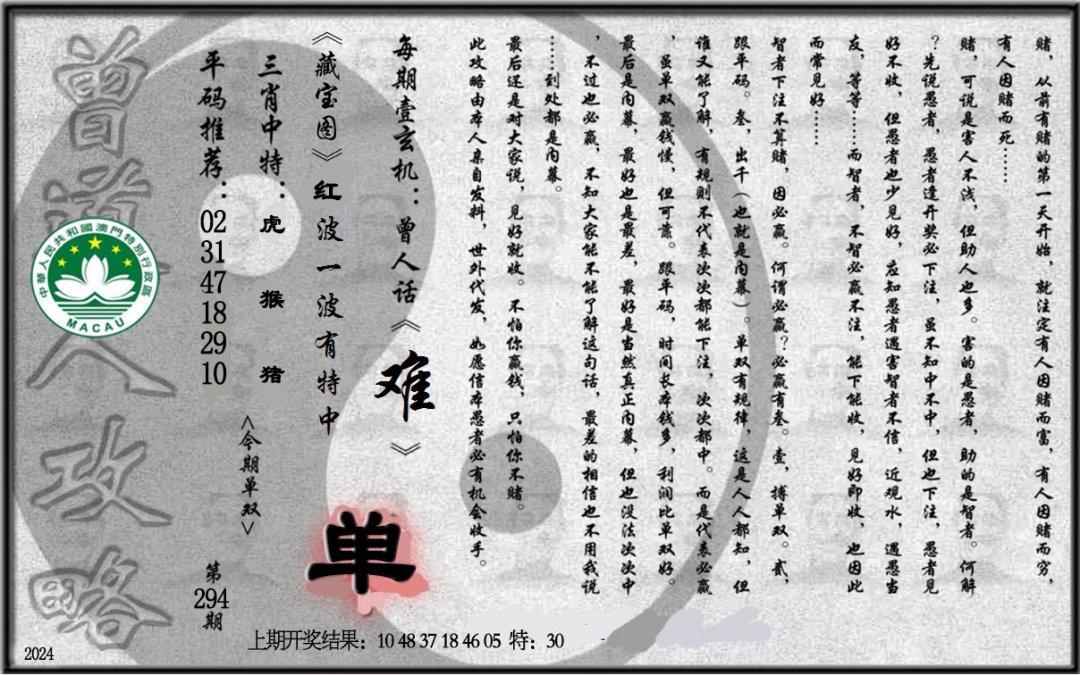 赌，从前有赌的第一天开始，就注定有人因赌而富，有人因赌而穷，
有人因赌而死……
赌，可说是害人不浅，但助人也多。害的是愚者，助的是智者。何解
？先说愚者，愚者逢开奖必下注，虽不知中不中，但也下注，愚者见
好不收，但愚者也少见好，应知愚者遇害智者不信，近观水，遇愚当
友，等等……而智者，不智必赢不注，能下能收，见好即收，也因此
而常见好……
智者下注不算赌，因必赢。何谓必赢？必赢有叁。壹，搏单双。贰，
跟平码。叁，出千（也就是内幕）。单双有规律，这是人人都知，但
谁又能了解，有规则不代表次次都能下注，次次都中。而是代表必赢
，虽单双赢钱慢，但可靠。跟平码，时间长本钱多，利润比单双好。
最后是内幕，最好也是最差，最好是当然真正内幕，但也没法次次中
，不过也必赢，不知大家能不能了解这句话，最差的相信也不用我说
……到处都是内幕。
最后还是对大家说，见好就收。不怕你赢钱，只怕你不赌。
此攻略由本人亲自发料，世外代发，如愿信本愚者必有机会收手。
每期壹玄机：曾人话《难》
《藏宝图》红波一波有特中
单
三肖中特：虎 猴 猪
<今期单双>
平码推荐：02 31 47 18 29 10
第294期
曾道人攻略
中華人民共和國澳門特別行政區
MACAU
上期开奖结果：10 48 37 18 46 05 特：30
2024